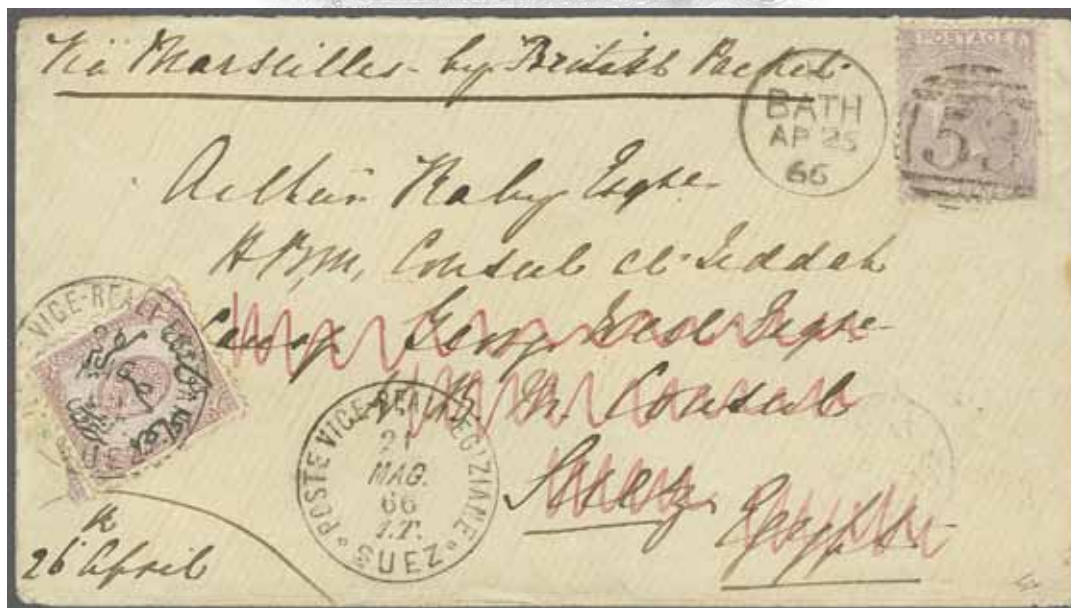 Via Marseilles - by British Packet
BATH
AP 25
66
POSTAGE
53
Arthur Raby Esqre
H.B.M. Consul at Jeddah
Care of George West Esqre
H. B. M. Consul
Suez
Egypt
VICE-REALI
SUEZ
POSTE VICE-REALI EGIZIANE
21
MAG.
66
I.T.
SUEZ
26 April